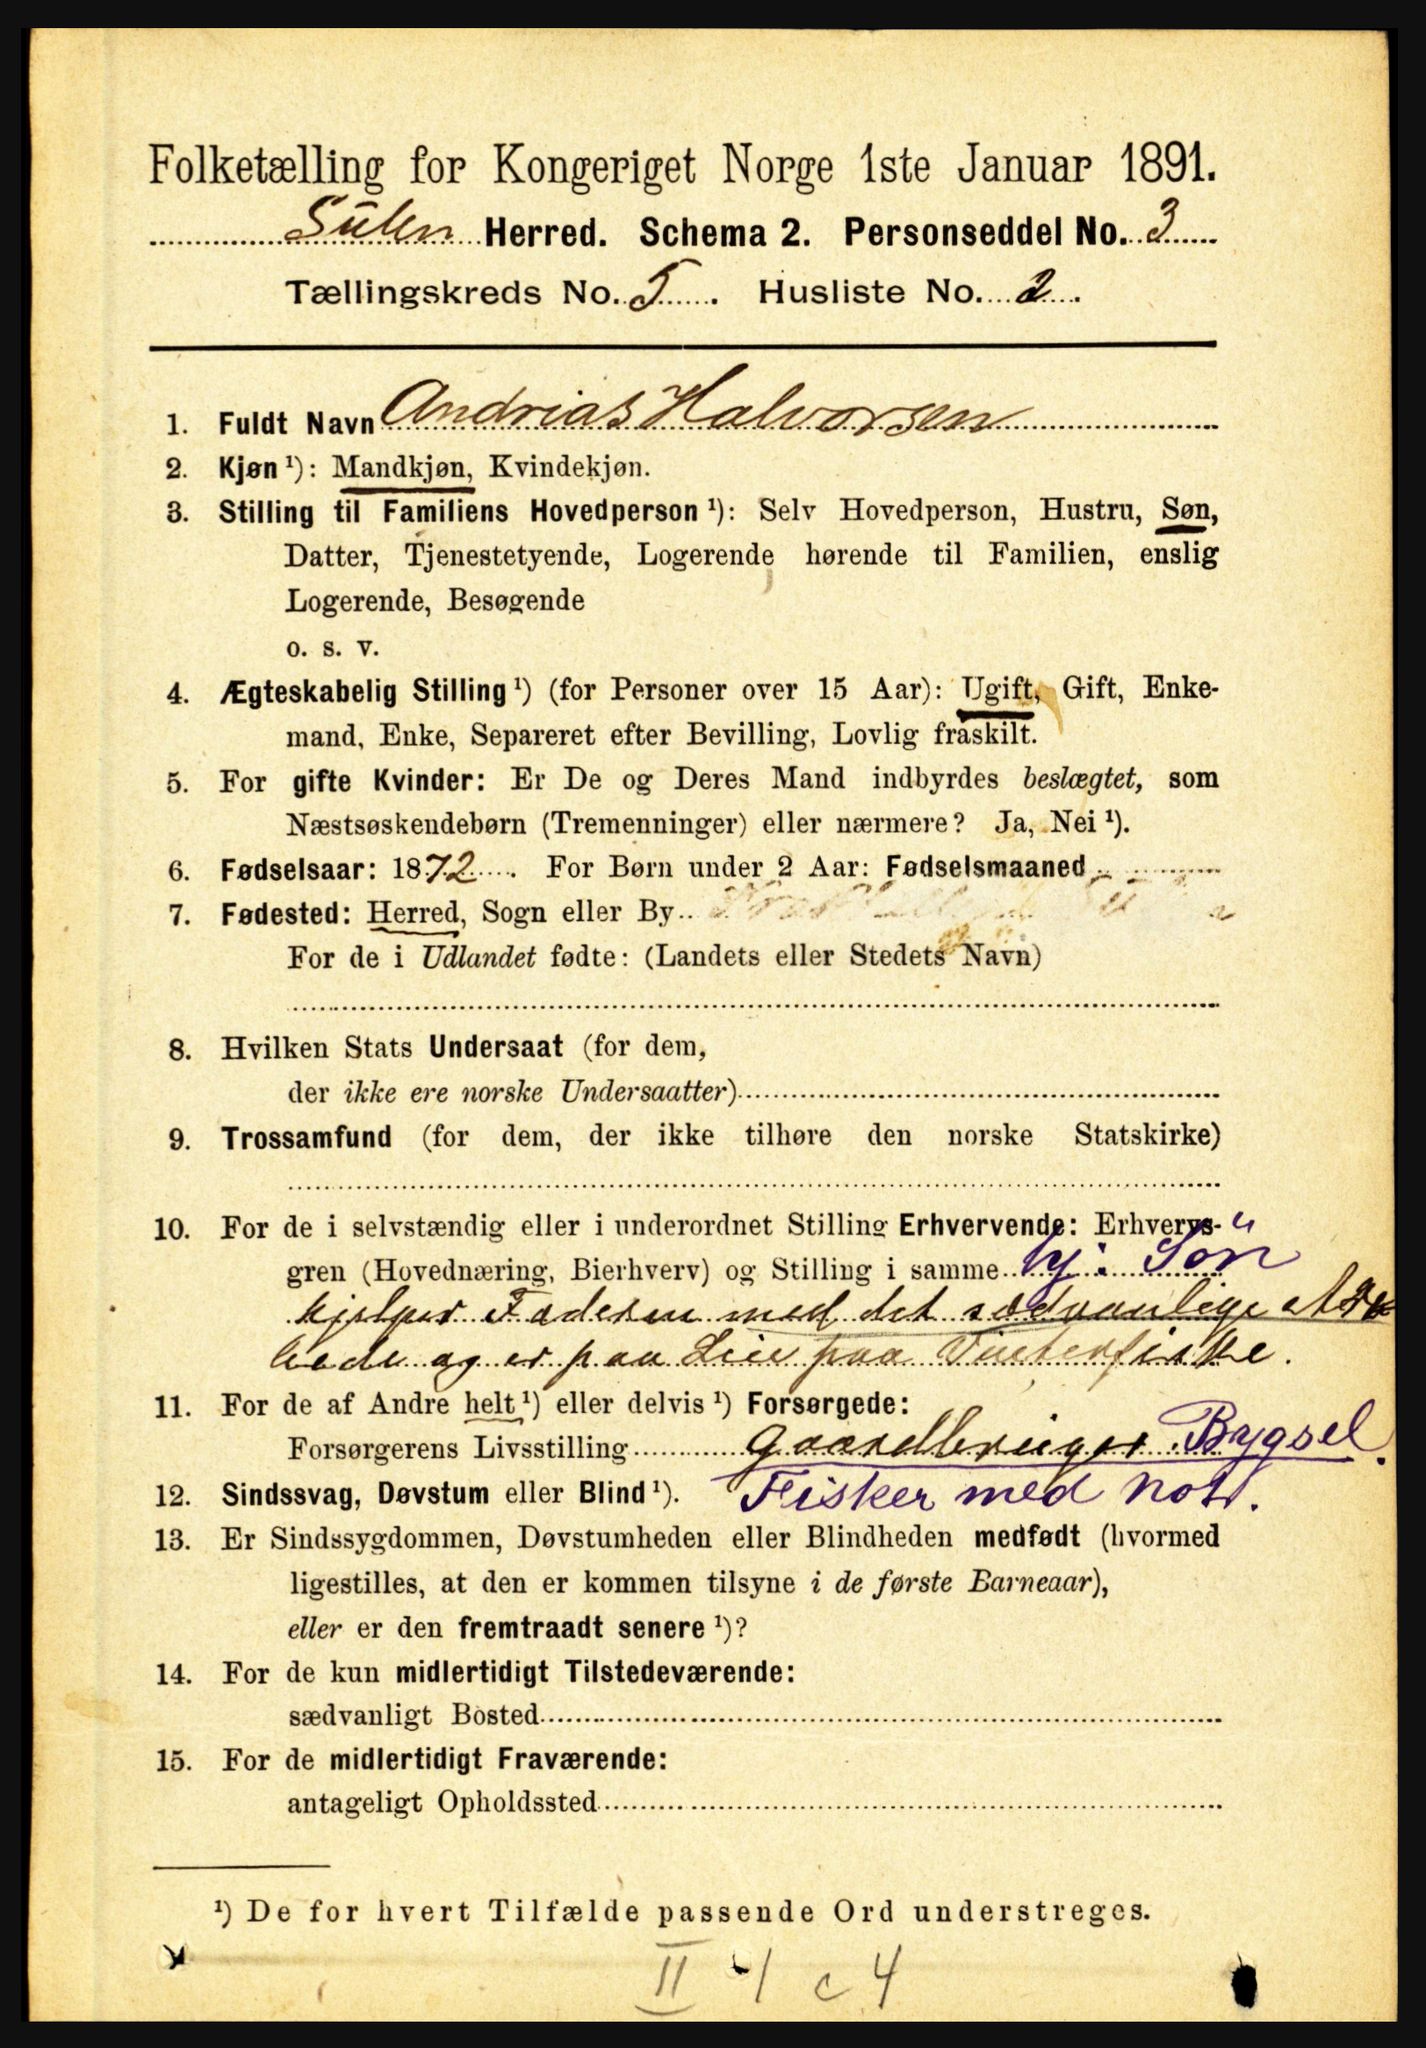 Folketælling for Kongeriget Norge 1ste Januar 1891.
Sulen Herred. Schema 2. Personseddel No. 3
Tællingskreds No. 5. Husliste No. 2.
1. Fuldt Navn Andrias Halvorsen
2. Kjøn ¹): Mandkjøn, Kvindekjøn.
3. Stilling til Familiens Hovedperson ¹): Selv Hovedperson, Hustru, Søn,
Datter, Tjenestetyende, Logerende hørende til Familien, enslig
Logerende, Besøgende
o. s. v.
4. Ægteskabelig Stilling ¹) (for Personer over 15 Aar): Ugift, Gift, Enke-
mand, Enke, Separeret efter Bevilling, Lovlig fraskilt.
5. For gifte Kvinder: Er De og Deres Mand indbyrdes beslægtet, som
Næstsøskendebørn (Tremenninger) eller nærmere? Ja, Nei ¹).
6. Fødselsaar: 1872. For Børn under 2 Aar: Fødselsmaaned
7. Fødested: Herred, Sogn eller By
For de i Udlandet fødte: (Landets eller Stedets Navn)
8. Hvilken Stats Undersaat (for dem,
der ikke ere norske Undersaatter)
9. Trossamfund (for dem, der ikke tilhøre den norske Statskirke)
10. For de i selvstændig eller i underordnet Stilling Erhvervende: Erhvervs-
gren (Hovednæring, Bierhverv) og Stilling i samme Søn
hjelper Faderen med det sædvanlige Ar
beide og er paa Leie paa Vinterfiske.
11. For de af Andre helt ¹) eller delvis ¹) Forsørgede:
Forsørgerens Livsstilling Gaardbruger Bygsel.
12. Sindssvag, Døvstum eller Blind ¹). Fisker med not.
13. Er Sindssygdommen, Døvstumheden eller Blindheden medfødt (hvormed
ligestilles, at den er kommen tilsyne i de første Barneaar),
eller er den fremtraadt senere ¹)?
14. For de kun midlertidigt Tilstedeværende:
sædvanligt Bosted
15. For de midlertidigt Fraværende:
antageligt Opholdssted
¹) De for hvert Tilfælde passende Ord understreges.
II 4 c 4